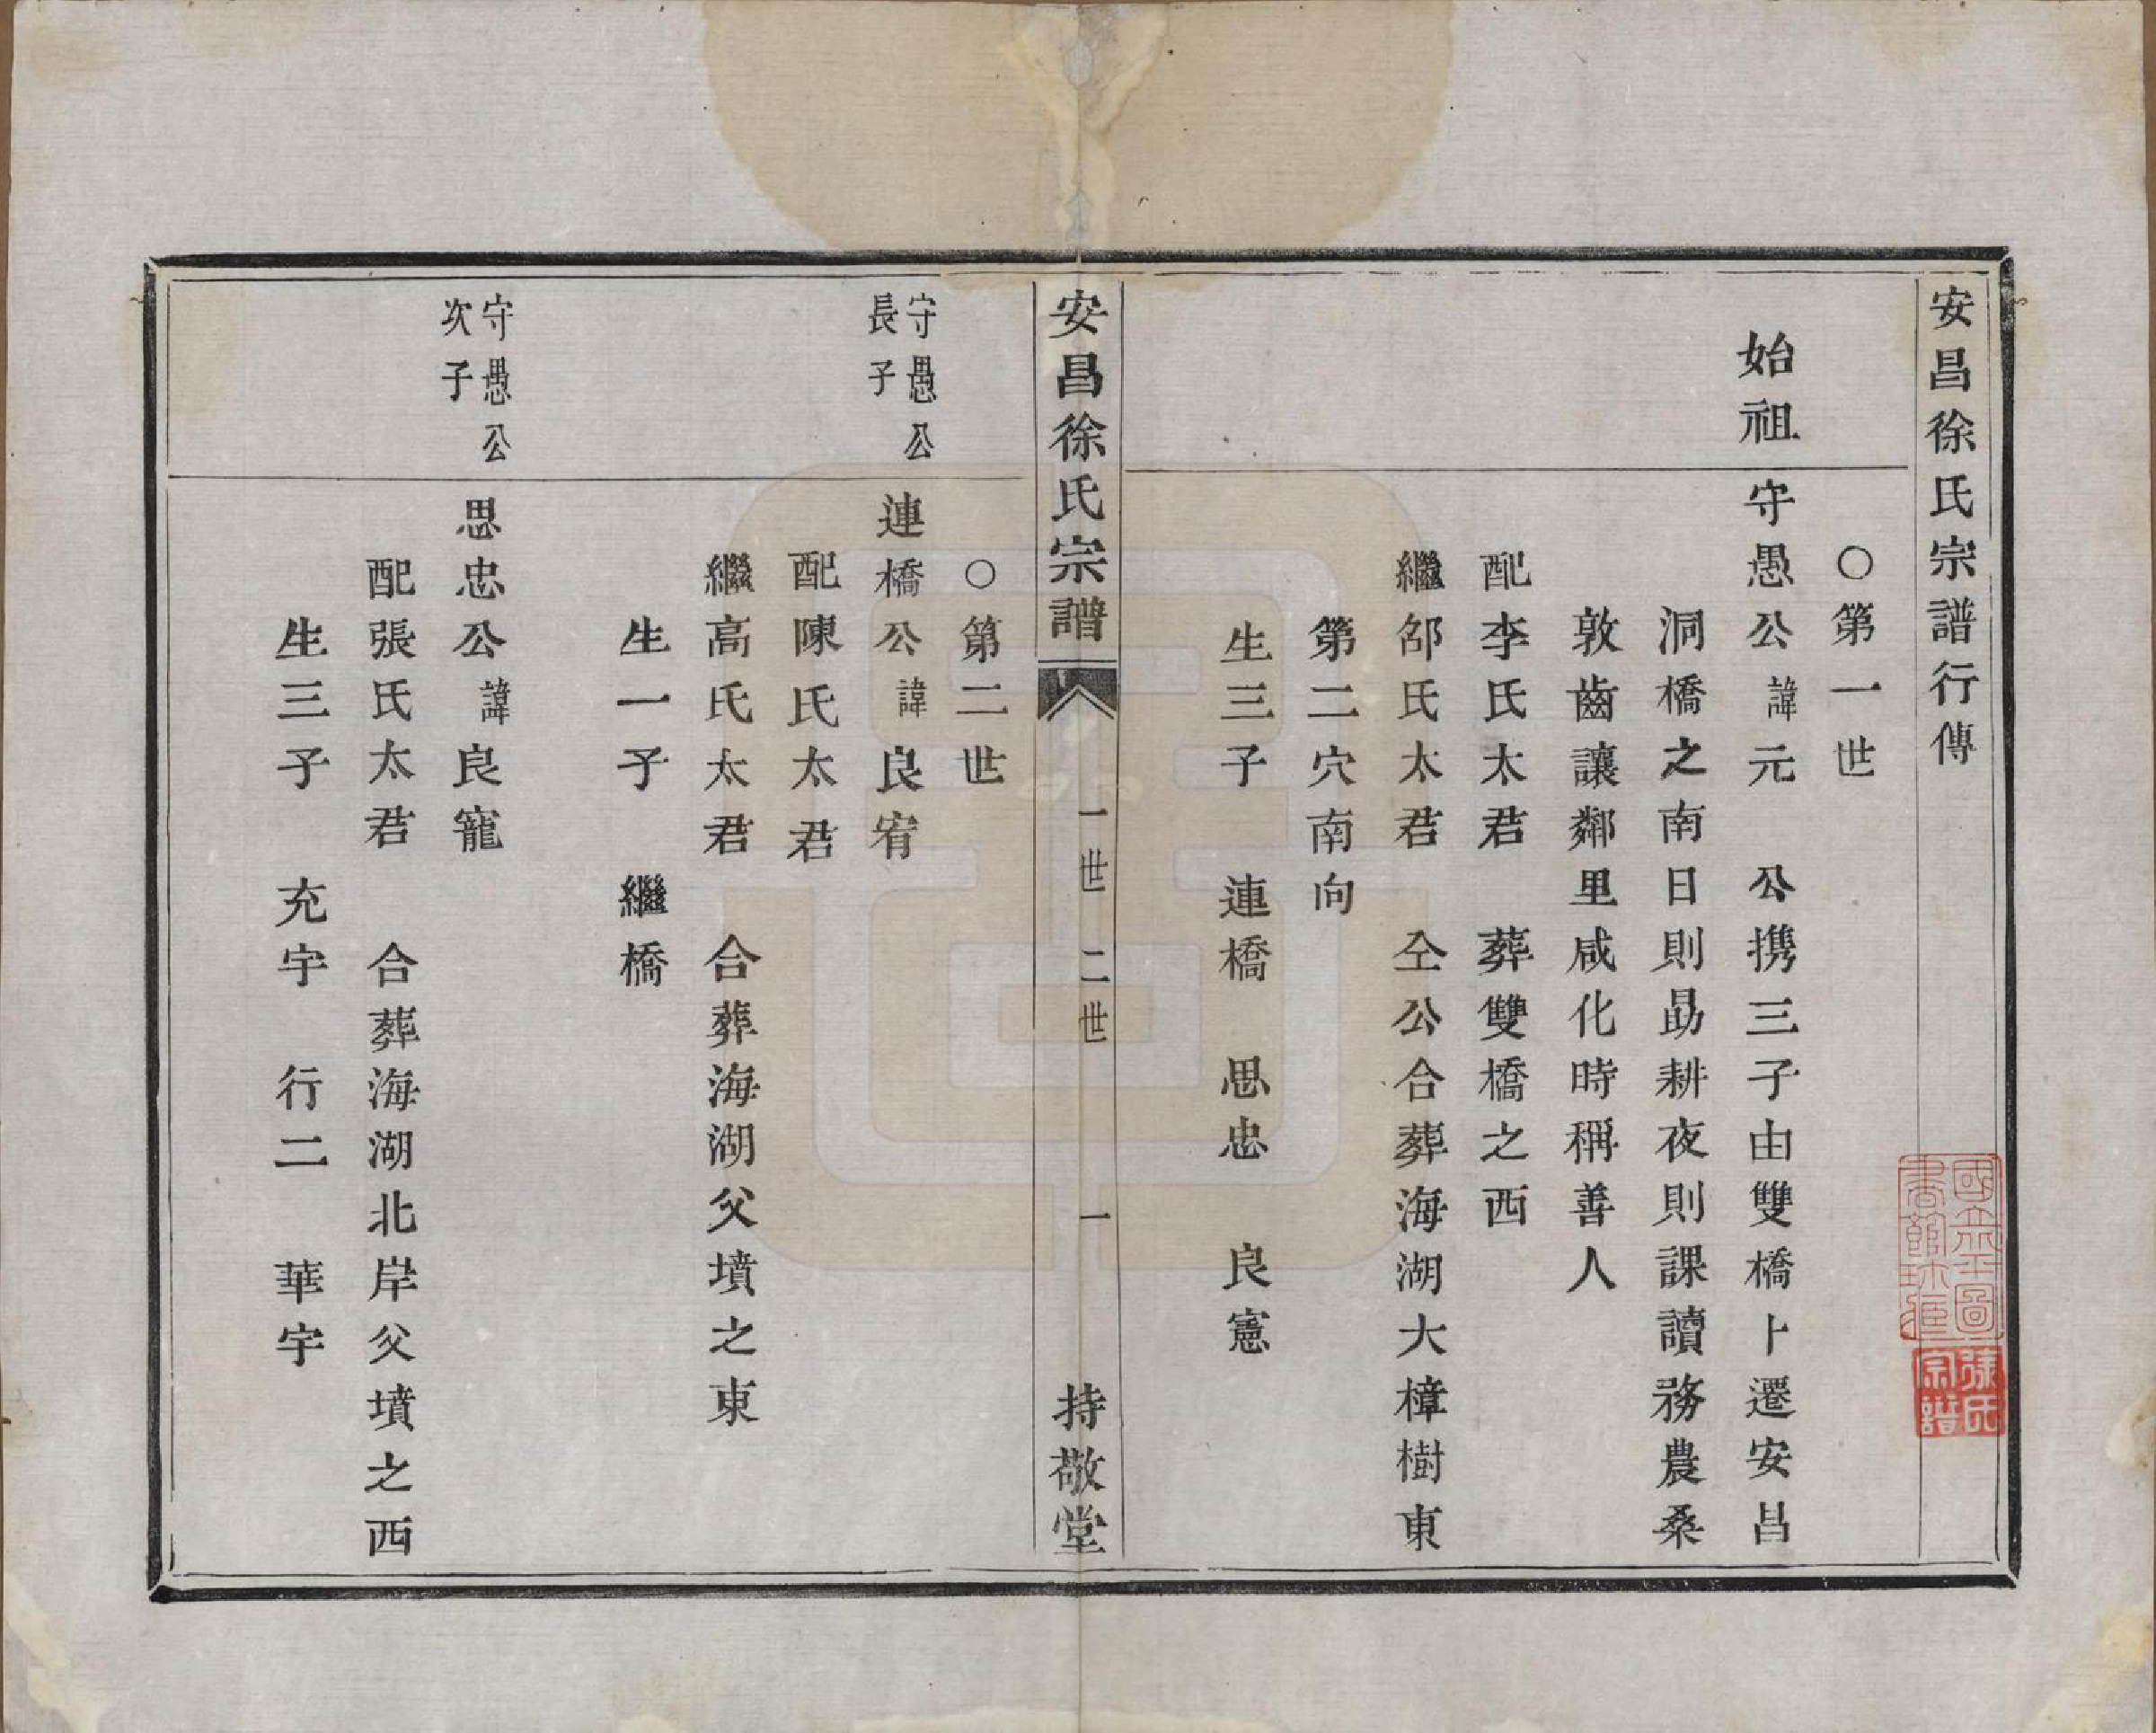 安昌徐氏宗譜行傳
○第一世
始祖
守愚公諱元　公携三子由雙橋卜遷安昌
洞橋之南日則勗耕夜則課讀務農桑
敦齒讓鄰里咸化時稱善人
配李氏太君　葬雙橋之西
繼邵氏太君　仝公合葬海湖大樟樹東
第二穴南向
生三子　連橋　思忠　良憲
安昌徐氏宗譜　一世　二世　一　持敬堂
○第二世
守愚公
長子
連橋公諱良宥
配陳氏太君
繼高氏太君　合葬海湖父墳之東
生一子　繼橋
守愚公
次子
思忠公諱良寵
配張氏太君　合葬海湖北岸父墳之西
生三子　充宇　行二　華宇
國立北平圖書館珎藏
孫氏宗譜